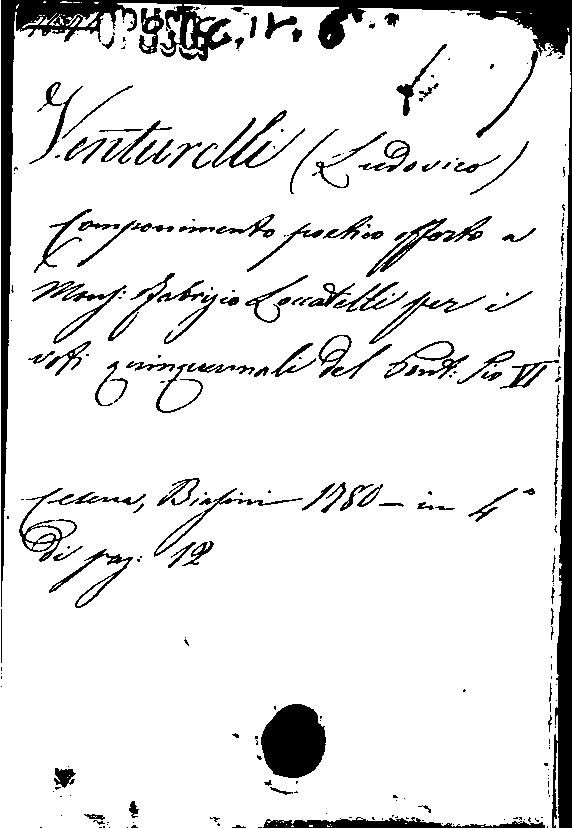 Venturelli (Ludovico)
Componimento poetico offerto a
Mons: Fabrizio Loccatelli per i
voti quinquennali del Pont: Pio VI
Cesena, Biasini 1780 - in 4°
di pag: 12